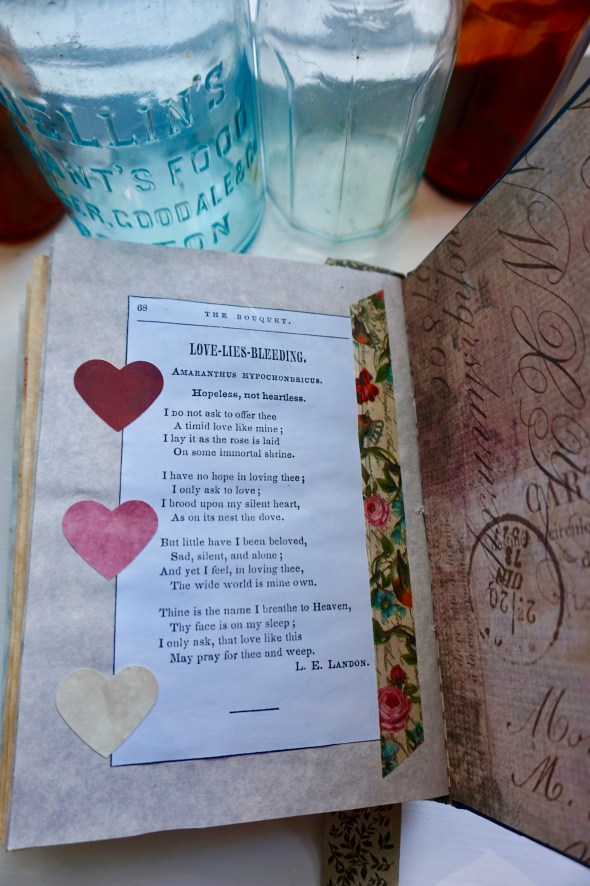 ELLIN'S
ANT'S FOOD
ER, GOODALE & C
TON
68
THE BOUQUET.
LOVE-LIES-BLEEDING.
AMARANTHUS HYPOCHONDRICUS.
Hopeless, not heartless.
I DO not ask to offer thee
A timid love like mine;
I lay it as the rose is laid
On some immortal shrine.
I have no hope in loving thee;
I only ask to love;
I brood upon my silent heart,
As on its nest the dove.
But little have I been beloved,
Sad, silent, and alone;
And yet I feel, in loving thee,
The wide world is mine own.
Thine is the name I breathe to Heaven,
Thy face is on my sleep;
I only ask, that love like this
May pray for thee and weep.
L. E. LANDON.